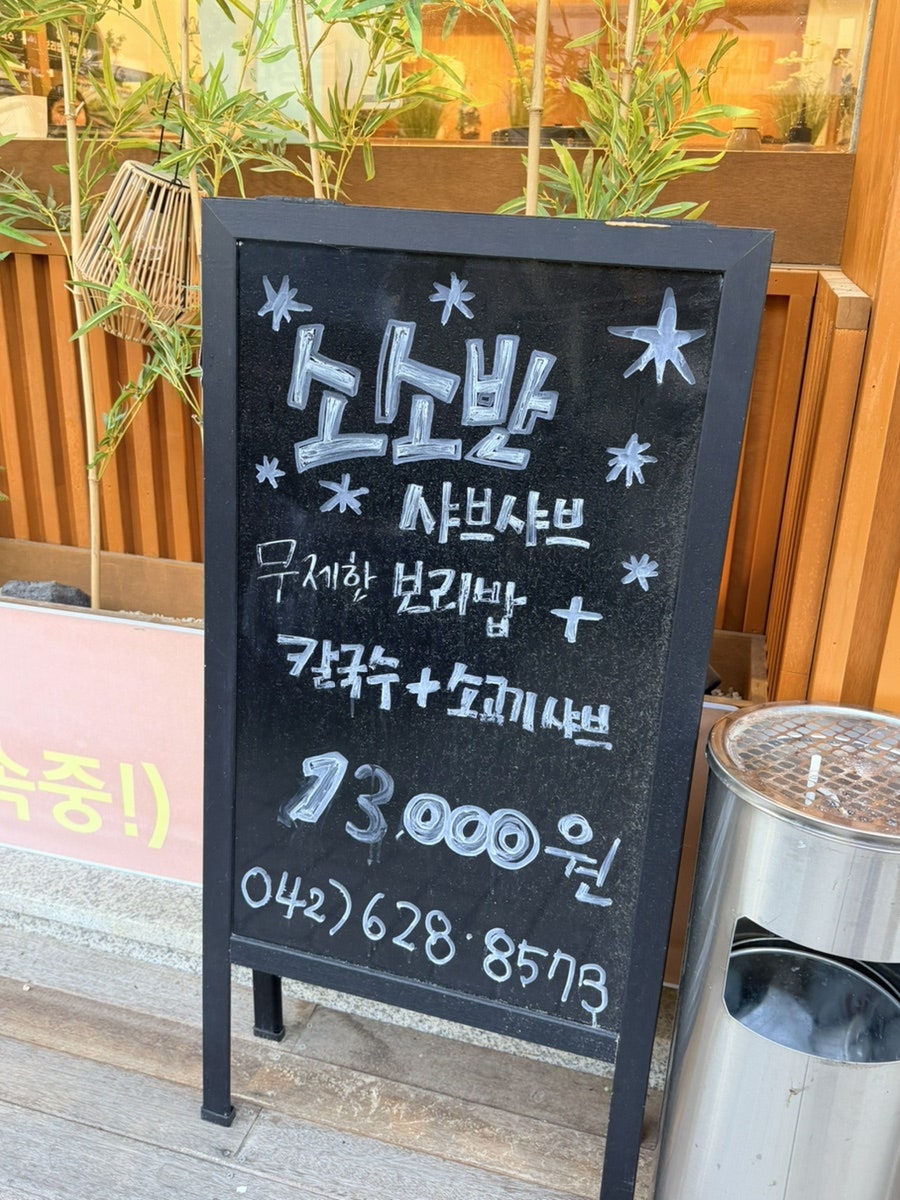 소소밥
샤브샤브
무제한 보리밥 +
칼국수+소고기샤브
13,000원
042)628·8573
속중!)